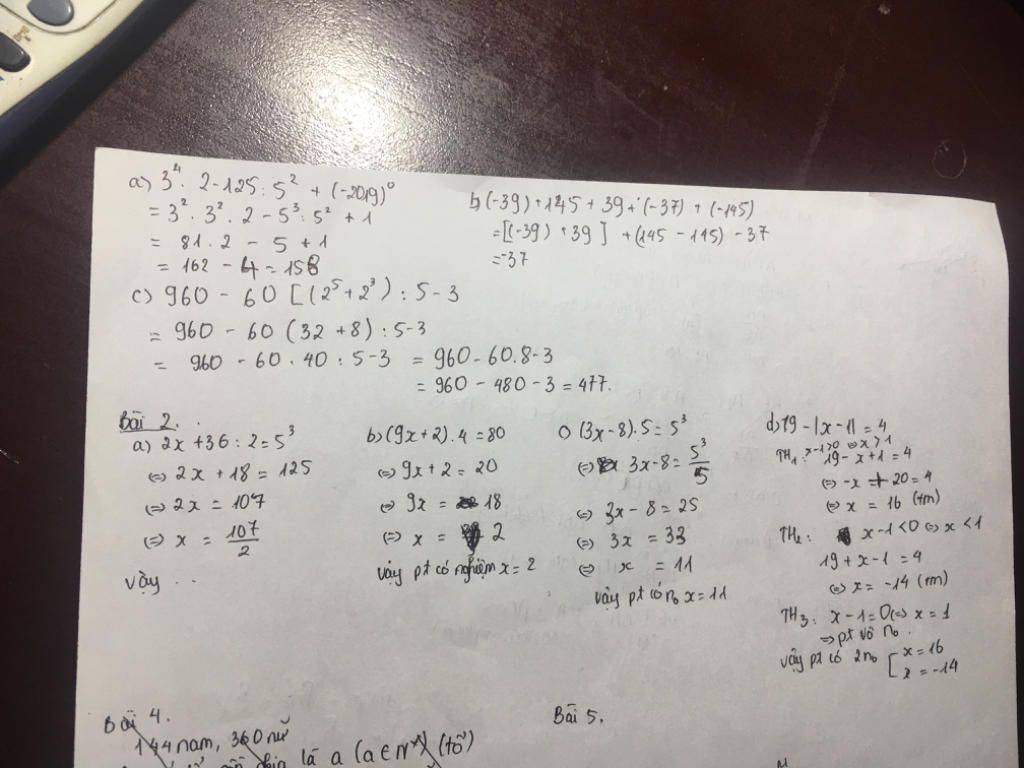 a) 3⁴. 2 - 125 : 5² + (-2019)⁰
= 3². 3². 2 - 5³ : 5² + 1
= 81. 2 - 5 + 1
= 162 - 4 = 158
b) (-39) + 145 + 39 + (-37) + (-145)
= [(-39) + 39] + (145 - 145) - 37
= -37
c) 960 - 60 [(2⁵ + 2³) : 5 - 3
= 960 - 60 (32 + 8) : 5 - 3
= 960 - 60 . 40 : 5 - 3 = 960 - 60.8 - 3
= 960 - 480 - 3 = 477.
Bài 2.
a) 2x + 36 : 2 = 5³
(=) 2x + 18 = 125
(=) 2x = 107
(=) x = 107/2
Vậy ...
b) (9x + 2) . 4 = 80
(=) 9x + 2 = 20
(=) 9x = 18
(=) x = 2
Vậy pt có nghiệm x = 2
c) (3x - 8) . 5 = 5³
(=) 3x - 8 = 5³/5
(=) 3x - 8 = 25
(=) 3x = 33
(=) x = 11
Vậy pt có n₀ x = 11
d) 19 - |x - 1| = 4
TH₁: x - 1 > 0 (=) x > 1
19 - x + 1 = 4
(=) -x + 20 = 4
(=) x = 16 (tm)
TH₂: x - 1 < 0 (=) x < 1
19 + x - 1 = 4
(=) x = -14 (tm)
TH₃: x - 1 = 0 (=) x = 1
=> pt vô n₀.
Vậy pt có 2n₀ [ x = 16
x = -14
Bài 4.
144 nam, 360 nữ
là a (a ∈ N*) (tổ)
Bài 5.